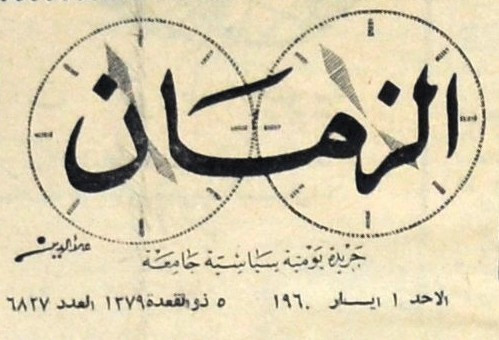 الزمان
علاءالدين
جريدة يومية سياسية جامعة
الاحد ١ ايار ١٩٦٠ ٥ ذو القعدة ١٣٧٩ العدد ٦٨٢٧